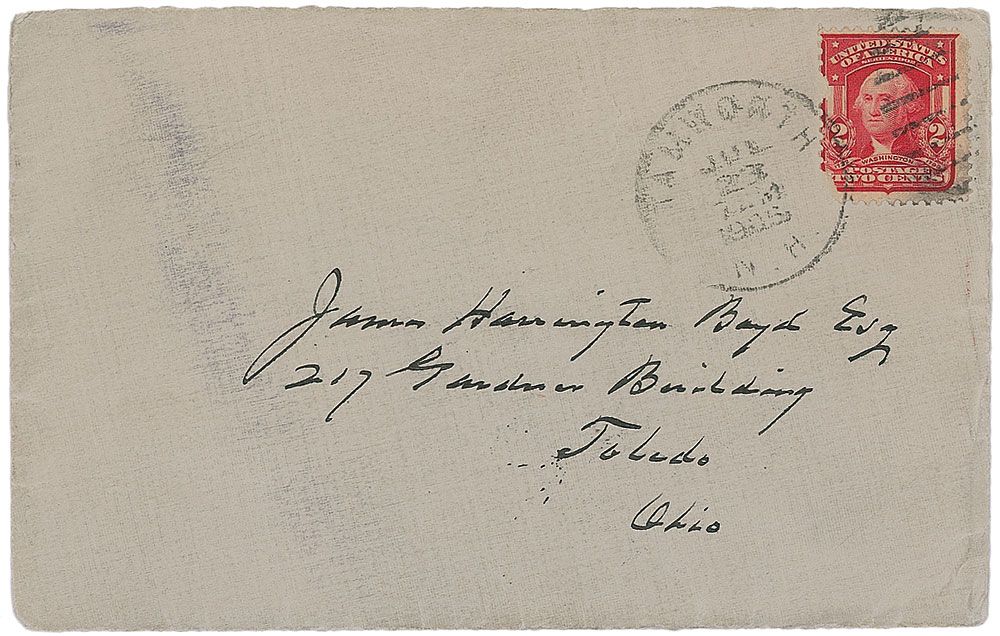 UNITED STATES
OF AMERICA
SERIES 1902
2 2
WASHINGTON
POSTAGE
TWO CENTS
TAMWORTH
N.H.
James Harrington Boyd Esq
217 Gardner Building
Toledo
Ohio